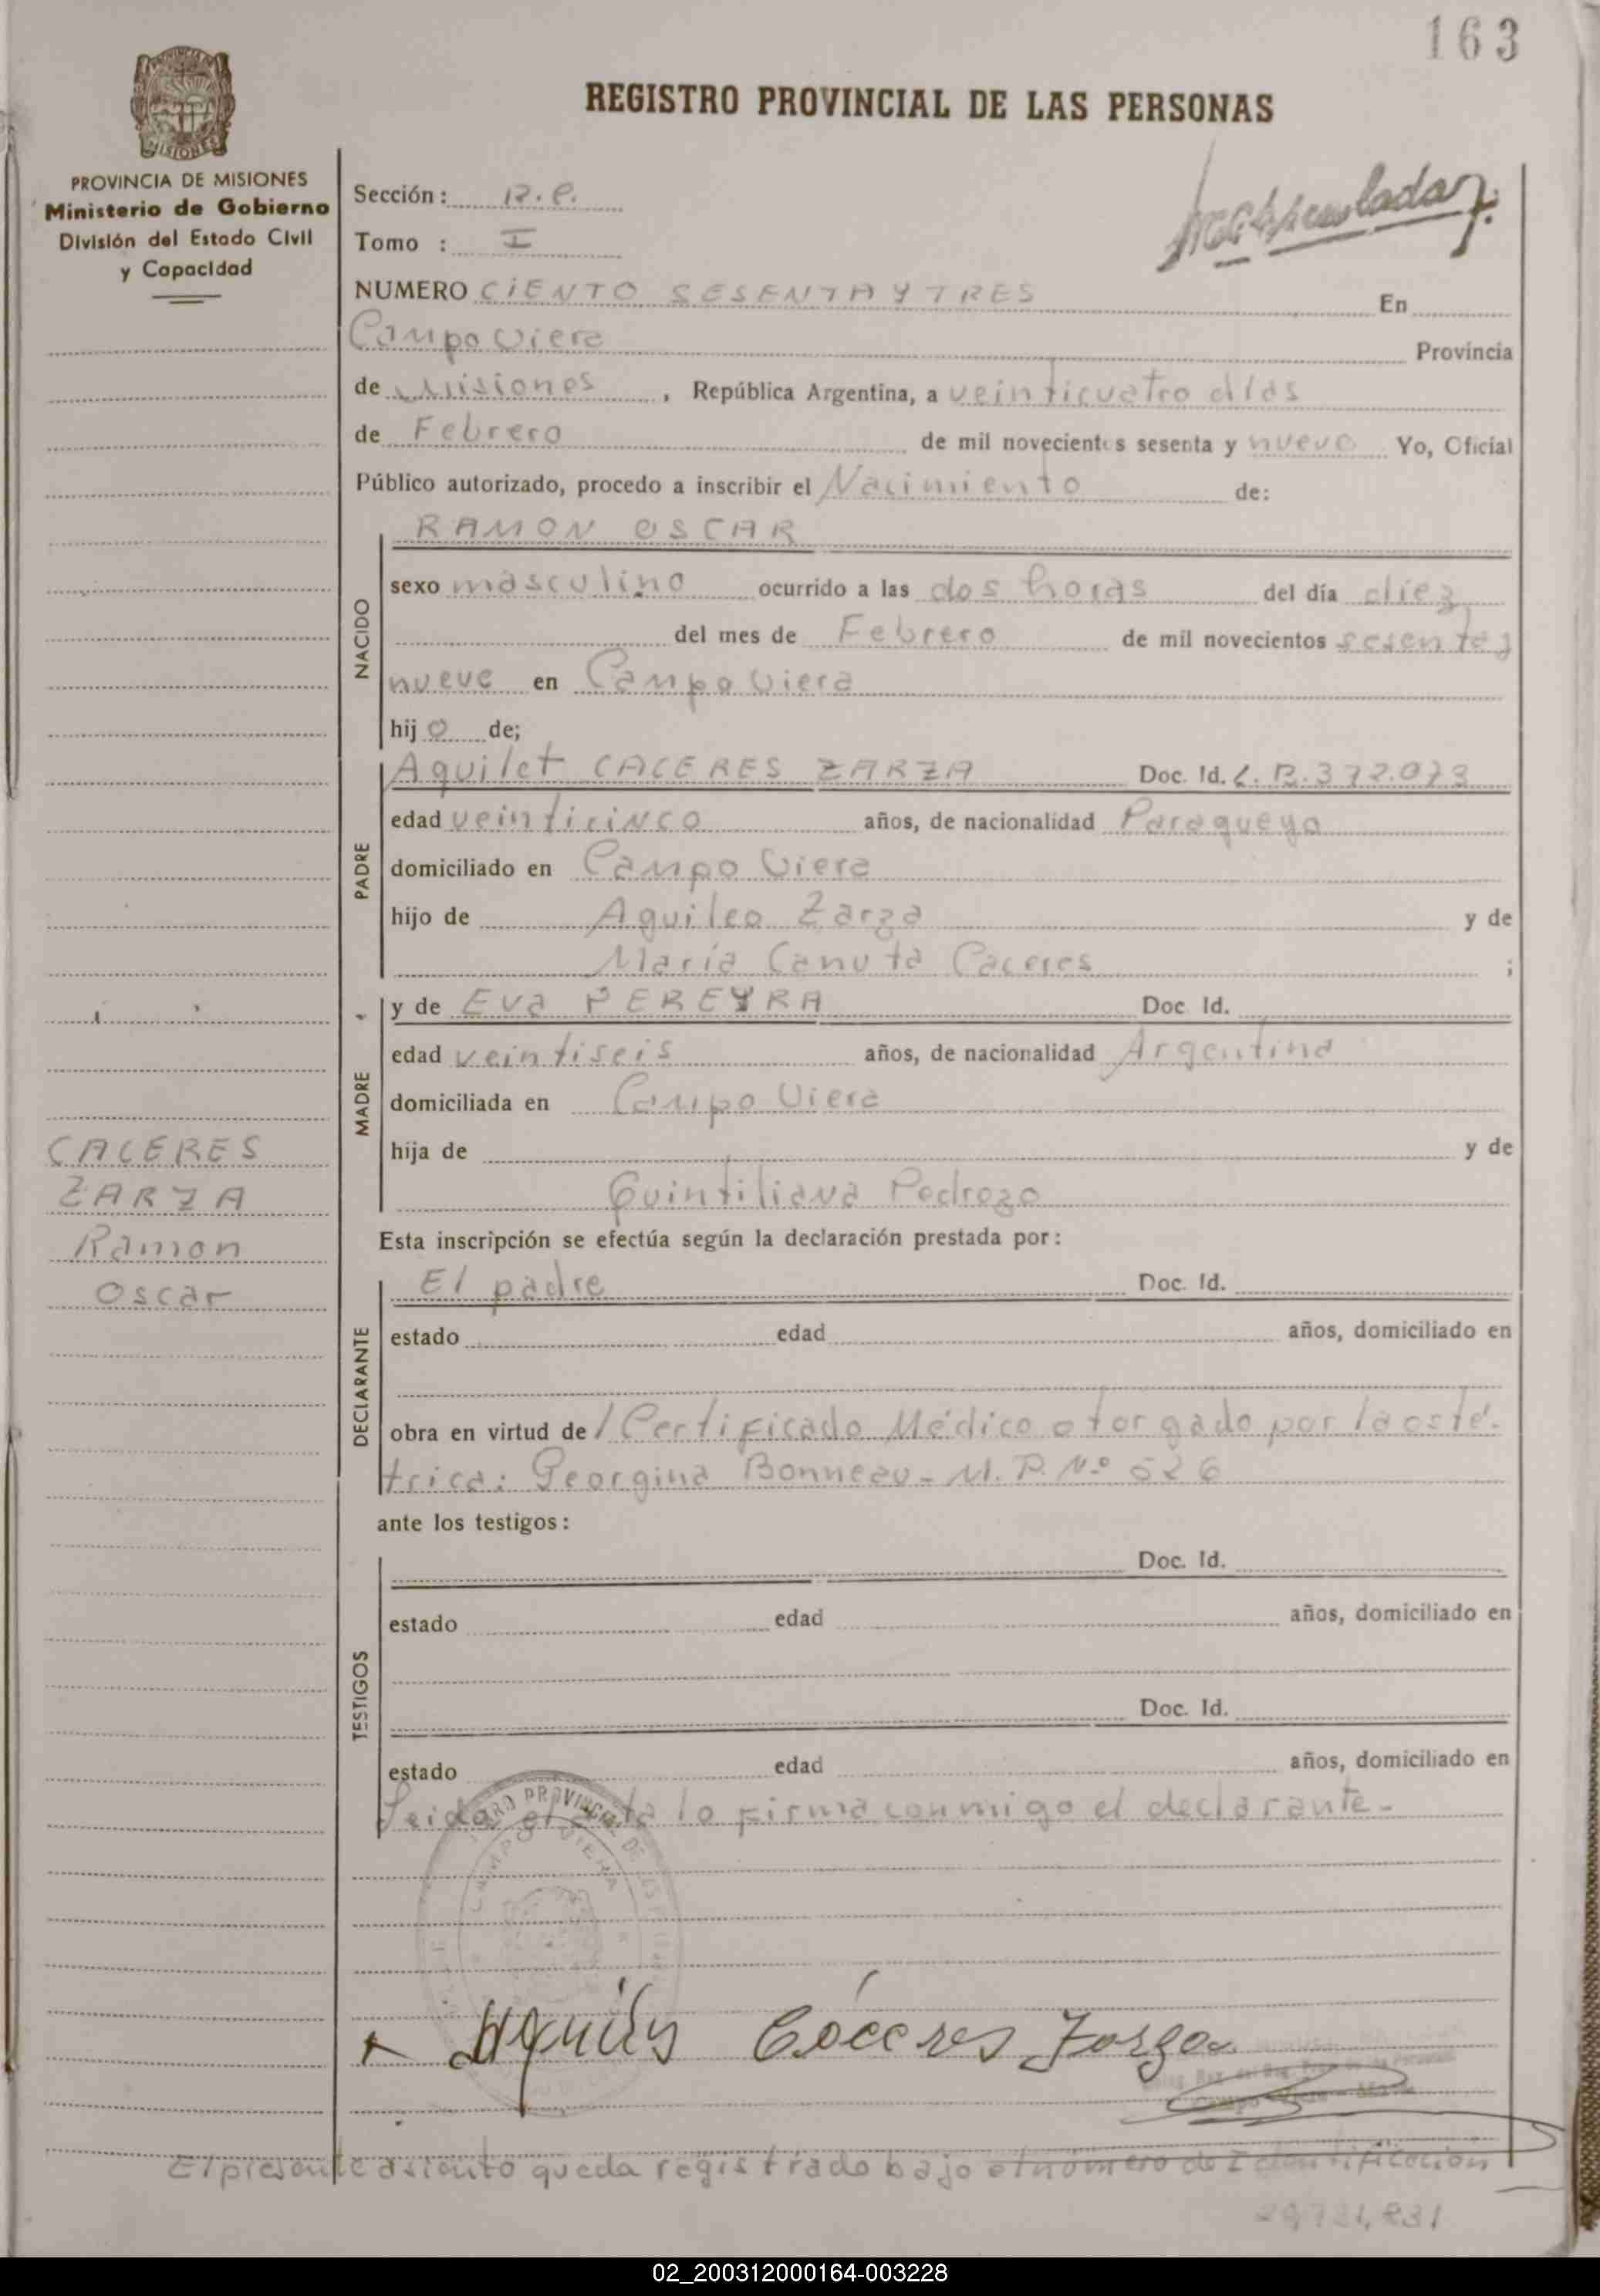 163
REGISTRO PROVINCIAL DE LAS PERSONAS
MISIONES
PROVINCIA DE MISIONES
Ministerio de Gobierno
División del Estado Civil
y Capacidad
Sección: R.P.
Tomo : I
NUMERO CIENTO SESENTA Y TRES En
Campo Viera Provincia
de Misiones, República Argentina, a veinticuatro días
de Febrero de mil novecientos sesenta y nueve Yo, Oficial
Público autorizado, procedo a inscribir el Nacimiento de:
NACIDO
RAMON OSCAR
sexo masculino ocurrido a las dos horas del día diez
del mes de Febrero de mil novecientos sesenta y
nueve en Campo Viera
hijo de;
PADRE
Aquilet CACERES ZARZA Doc. Id. C.B. 372.073
edad veinticinco años, de nacionalidad Paragueyo
domiciliado en Campo Viera
hijo de Aquileo Zarza y de
María Canuta Caceres ;
MADRE
y de Eva PEREYRA Doc. Id.
edad veintiseis años, de nacionalidad Argentina
domiciliada en Campo Viera
hija de y de
Quintiliana Pedrozo
CACERES
ZARZA
Ramon
Oscar
Esta inscripción se efectúa según la declaración prestada por:
DECLARANTE
El padre Doc. Id.
estado edad años, domiciliado en
obra en virtud de / Certificado Médico otorgado por la osté-
trica: Georgina Bonneau - M.P. Nº 526
ante los testigos:
TESTIGOS
Doc. Id.
estado edad años, domiciliado en
Doc. Id.
estado edad años, domiciliado en
Leida el acta lo firma conmigo el declarante -
CAMPO VIERA
Cáceres Zarza
El presente asiento queda registrado bajo el número de Identificación
02_200312000164-003228